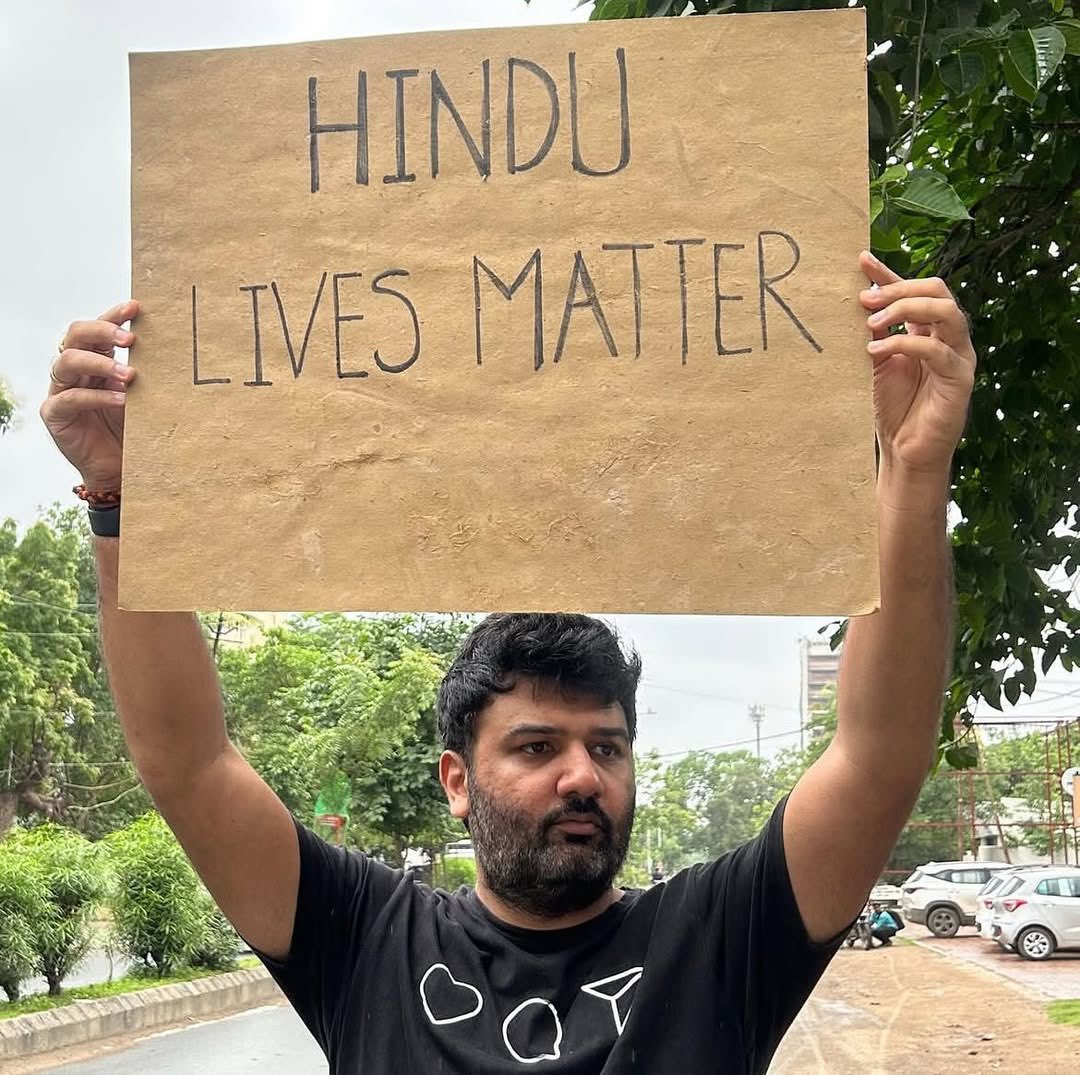 HINDU
LIVES MATTER